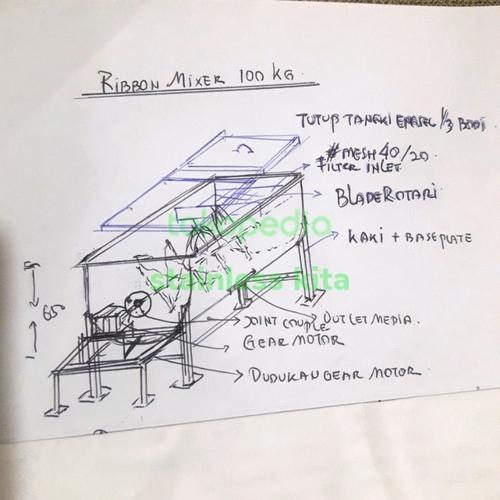 RIBBON MIXER 100 KG.
TUTUP TANGKI ENGSEL 1/3 BODI
# MESH 40/20
FILTER INLET
BLADE ROTARI
KAKI + BASEPLATE
tokopedia
stainless kita
65
JOINT COUPLE
OUTLET MEDIA.
GEAR MOTOR
DUDUKAN GEAR MOTOR